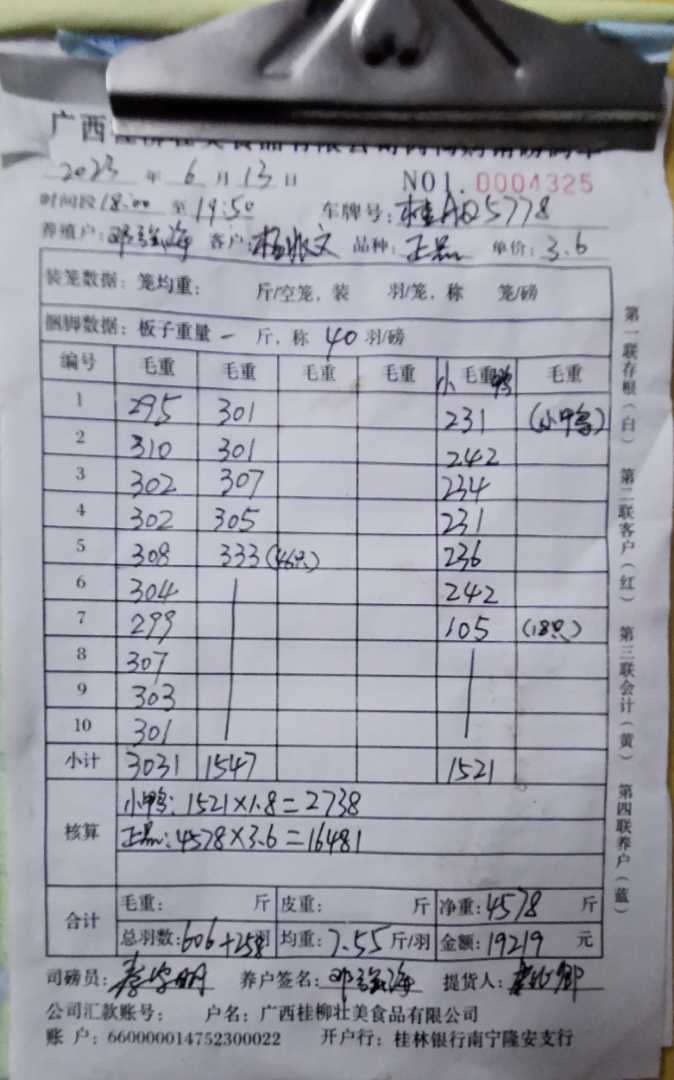 广西桂柳壮美食品有限公司
2023 年 6 月 13 日 NO1. 0004325
时间段 18:00 至 19:50 车牌号: 桂AQ5778
养殖户: 邓 海 客户: 杨 文 品种: 正品 单价: 3.6
装笼数据: 笼均重: 斤/空笼, 装 羽/笼, 称 笼/磅
捆脚数据: 板子重量 一 斤, 称 40 羽/磅
编号 毛重 毛重 毛重 毛重 小 毛重 鸭 毛重
1 295 301 231 (小鸭)
2 310 301 242
3 302 307 234
4 302 305 231
5 308 333 (46只) 236
6 304 242
7 299 105 (18只)
8 307
9 303
10 301
小计 3031 1547 1521
核算 小鸭: 1521×1.8=2738
正品: 4578×3.6=16481
合计 毛重: 斤 皮重: 斤 净重: 4578 斤
总羽数: 606+258羽 均重: 7.55 斤/羽 金额: 19219 元
司磅员: 李 明 养户签名: 邓 海 提货人:
公司汇款账号: 户名: 广西桂柳壮美食品有限公司
账 户: 660000014752300022 开户行: 桂林银行南宁隆安支行
第一联存根(白) 第二联客户(红) 第三联会计(黄) 第四联养户(蓝)